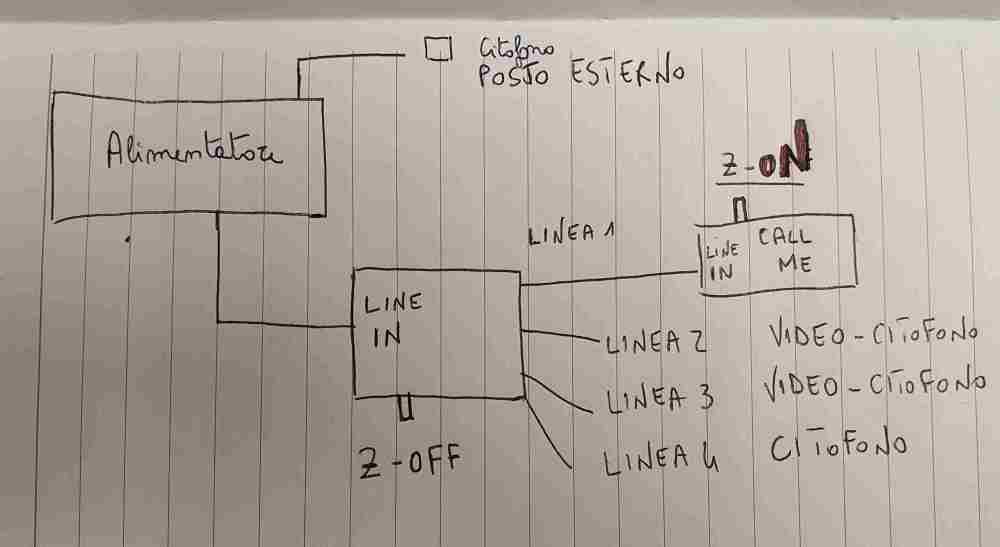 Citofono
POSTO ESTERNO
Alimentatore
Z-ON
LINEA 1
LINE IN
CALL ME
LINE IN
LINEA 2 VIDEO-CITOFONO
LINEA 3 VIDEO-CITOFONO
LINEA 4 CITOFONO
Z-OFF